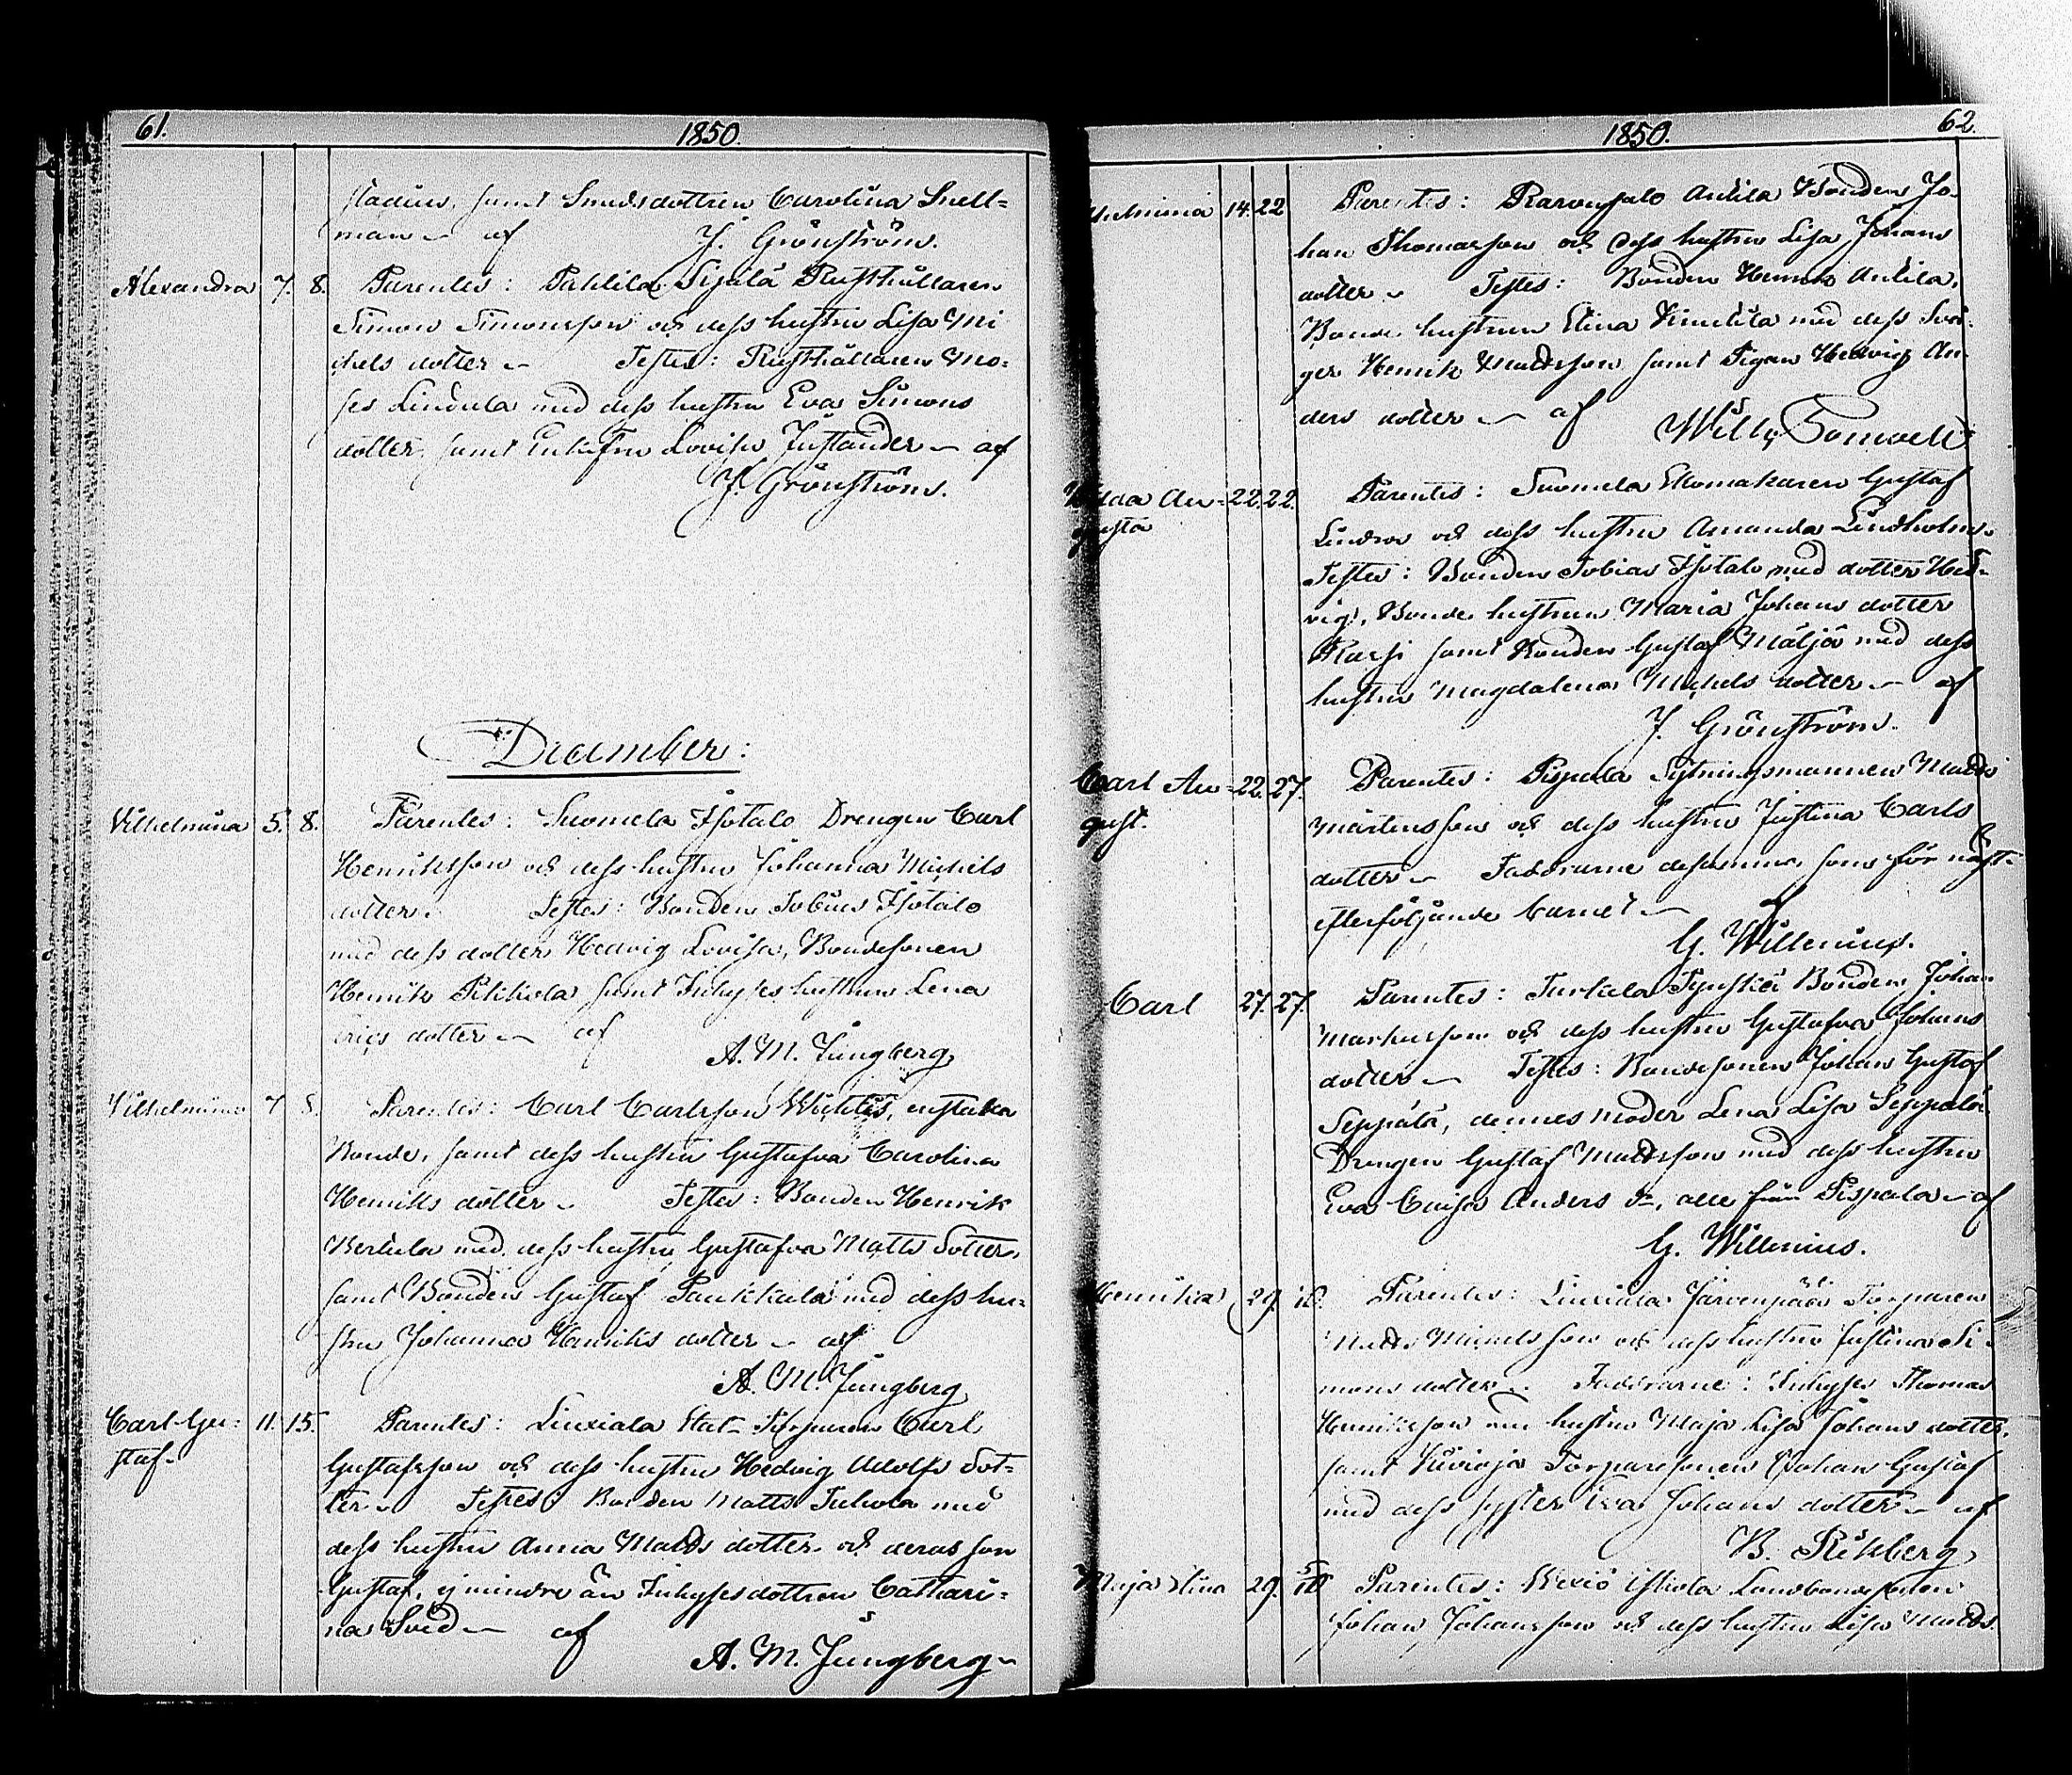 61.
1850.
stadius, samt Smedsdottren Carolina Snell=
man – af J. Grönström.
Alexandra 7. 8. Parentes: Pahlila Sipilä Rusthållaren
Simon Simonsson och dess hustru Lisa Mi
chels dotter – Testes: Rusthållaren Mo=
ses Lindula med dess hustru Eva Simons
dotter, samt Enkefru Lovisa Justander – af
J. Grönström.
December:
Vilhelmina 5. 8. Parentes: Suomela Isotalo Drengen Carl
Henriksson och dess hustru Johanna Michels
dotter. Testes: Bonden Tobias Isotalo
med dess dotter Hedvig Lovisa, Bondesonen
Henrik Pikkola samt Inhyses hustrun Lena
Erics dotter – af
A. M. Ljungberg
Vilhelmina 7 8. Parentes: Carl Carlsson
Bonde, samt dess hustru Gustafva Carolina
Henriks dotter – Testes: Bonden Henrik
Bertula med dess hustru Gustafva Matts dotter,
samt Bonden Gustaf Paukkala med dess hu=
stru Johanna Henriks dotter – af
A. M. Ljungberg
Carl Gu= 11. 15. Parentes: Linxiala Stat-Torparen Carl
staf.
Gustafsson och dess hustru Hedvig Adolfs dot=
ter – Testes: Bonden Matts Tuhola med
dess hustru Anna Matts dotter och deras son
Gustaf, ej mindre än Inhysesdottren Cathari=
na Svid – af
A. M. Ljungberg –
1850.
62.
14. 22 Parentes: Anttila Bonden Jo=
han Thomasson och dess hustru Lisa Johans
dotter – Testes: Bonden Henrik Anttila,
Bonde hustrun Elina med dess Svå=
ger Henrik Mattsson samt Pigan Hedvig An=
ders dotter – af
Will.
Hilda Au= 22. 22. Parentes: Suomela Skomakaren Gustaf
gusta
Lindros och dess hustru Amanda Lindholm.
Testes: Bonden Tobias Isotalo med dotter Hed=
vig, Bonde hustrun Maria Johans dotter
samt Bonden Gustaf Mäljä med dess
hustru Magdalena Michels dotter – af
J. Grönström.
Carl Au= 22. 27. Parentes: Pispala Sytningsmannen Matts
gust.
Mårtensson och dess hustru Justina Carls
dotter – Faddrarne desamma som för näst=
efterföljande barnet – af
G. Willenius.
Carl 27. 27. Parentes: Turkala Bonden Johan
Markusson och dess hustru Gustafva Johans
dotter – Testes: Bondesonen Johan Gustaf
Seppälä, dennes moder Lena Lisa Seppälä
Drengen Gustaf Mattsson med dess hustru
Eva Caisa Anders dr, alle från Pispala – af
G. Willenius.
Henrika 29. Parentes: Linxiala Järvenpää Torparen
Matts Michelsson och dess hustru Justina Si=
mons dotter. Faddrarne: Inhyses Thomas
Henriksson och hustru Maja Lisa Johans dotter,
samt Kivioja Torparesonen Johan Gustaf
med dess syster Eva Johans dotter – af
B. Rikberg
Maja Stina 29. Parentes: Landbonden
Johan Johansson och dess hustru Lisa Matts